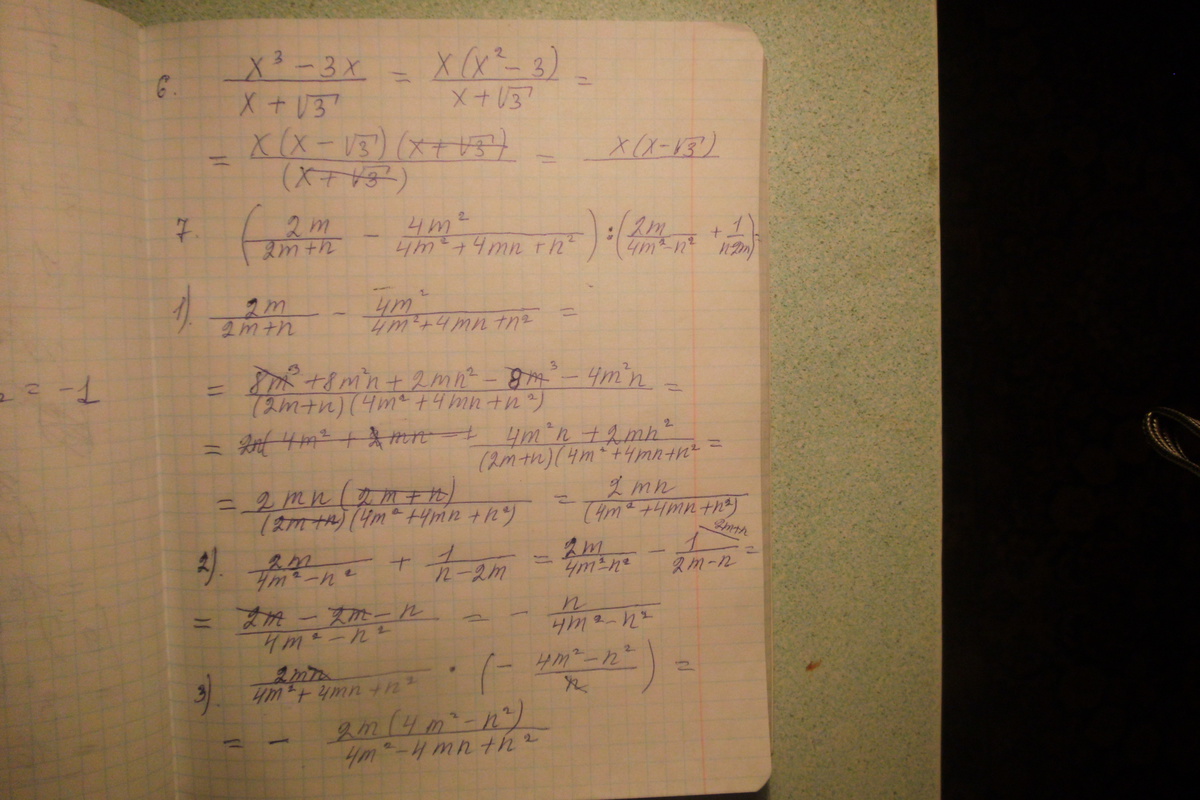 6. (x³ - 3x)/(x + √3) = x(x² - 3)/(x + √3) =
= x(x - √3)(x + √3)/(x + √3) = x(x - √3)
7. (2m/(2m+n) - 4m²/(4m² + 4mn + n²)) : (2m/(4m² - n²) + 1/(n-2m)) =
1). 2m/(2m+n) - 4m²/(4m² + 4mn + n²) =
n = -1
= (8m³ + 8m²n + 2mn² - 8m³ - 4m²n)/((2m+n)(4m² + 4mn + n²)) =
= (4m²n + 2mn²)/((2m+n)(4m² + 4mn + n²) =
= 2mn(2m+n)/((2m+n)(4m² + 4mn + n²)) = 2mn/(4m² + 4mn + n²)
2). 2m/(4m² - n²) + 1/(n - 2m) = 2m/(4m² - n²) - 1/(2m - n) 2m+n =
= (2m - 2m - n)/(4m² - n²) = - n/(4m² - n²)
3). 2mn/(4m² + 4mn + n²) · (- (4m² - n²)/n) =
= - 2m(4m² - n²)/(4m² - 4mn + n²)